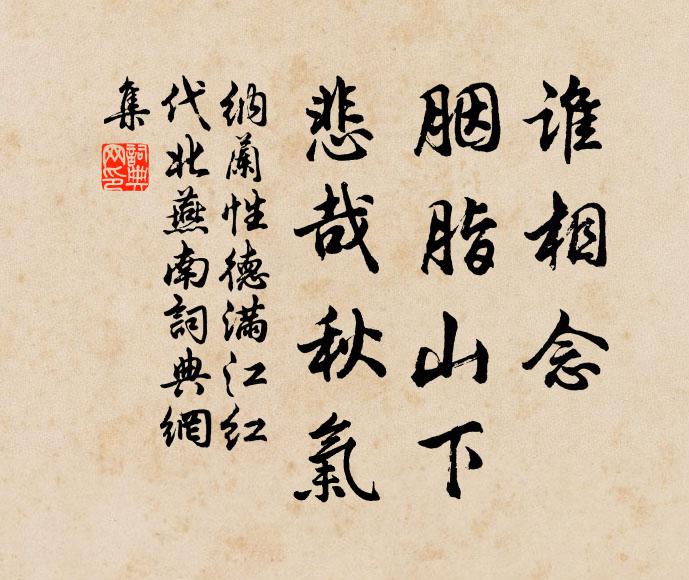 誰相念
胭脂山下
悲哉秋氣
納蘭性德滿江紅
代北燕南詞典網
集
詞典網印